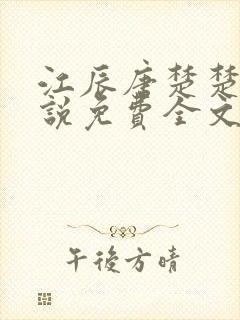 江辰唐楚楚
說免費全文
午後方晴